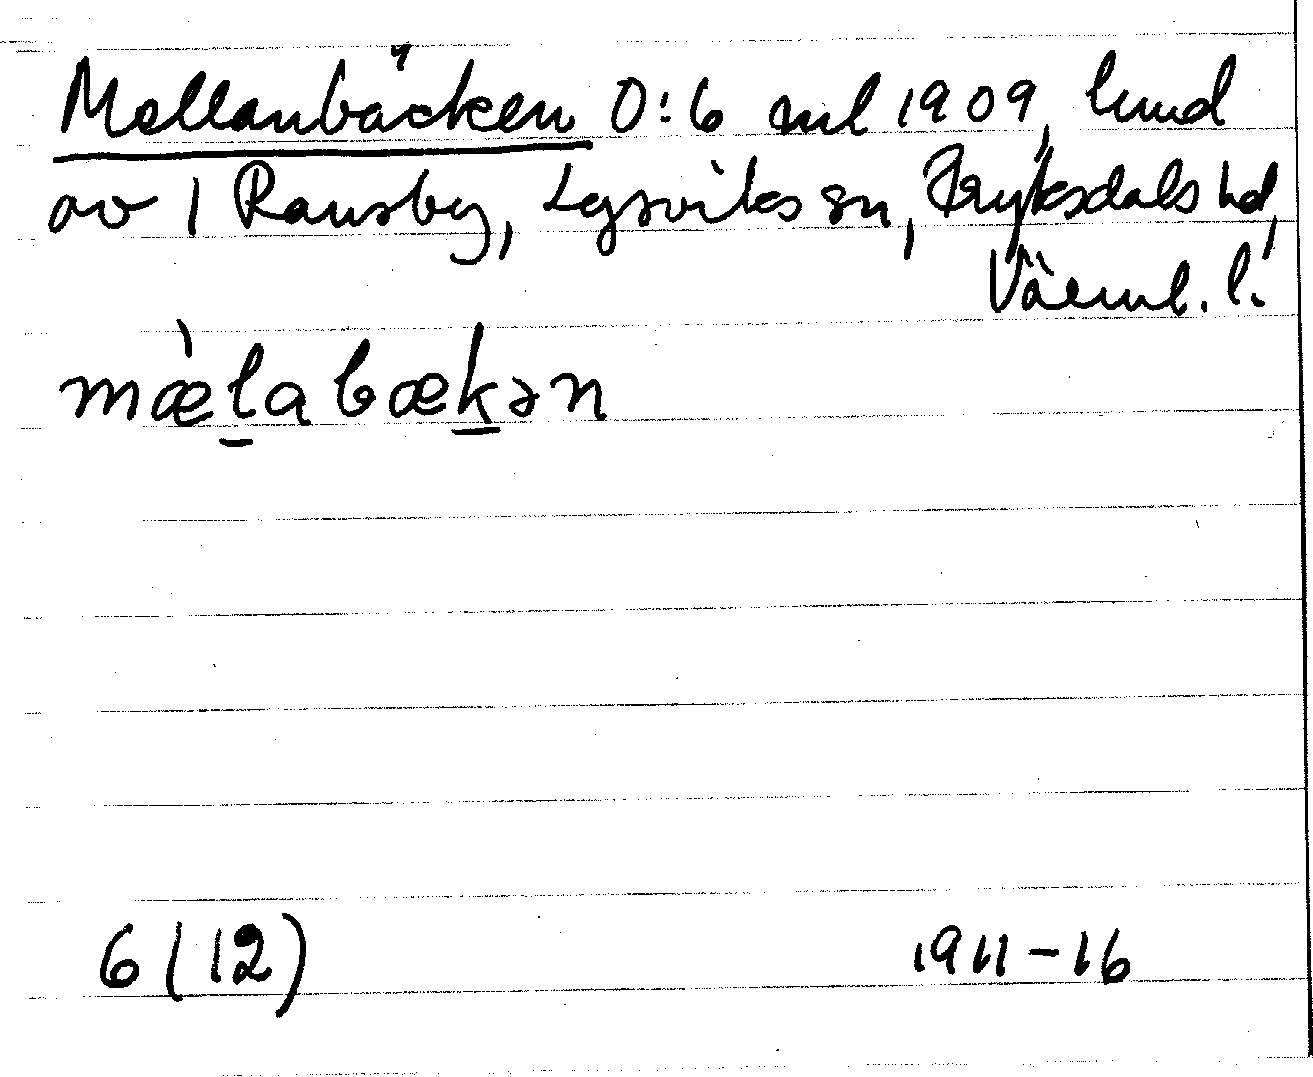 Mellanbäcken 0:6 ml 1909, lund
av 1 Ransby, Lysviks sn, Fryksdals hd,
Värml. l.
mæ̀l̠abæk̠ən
6 (12) 1911-16